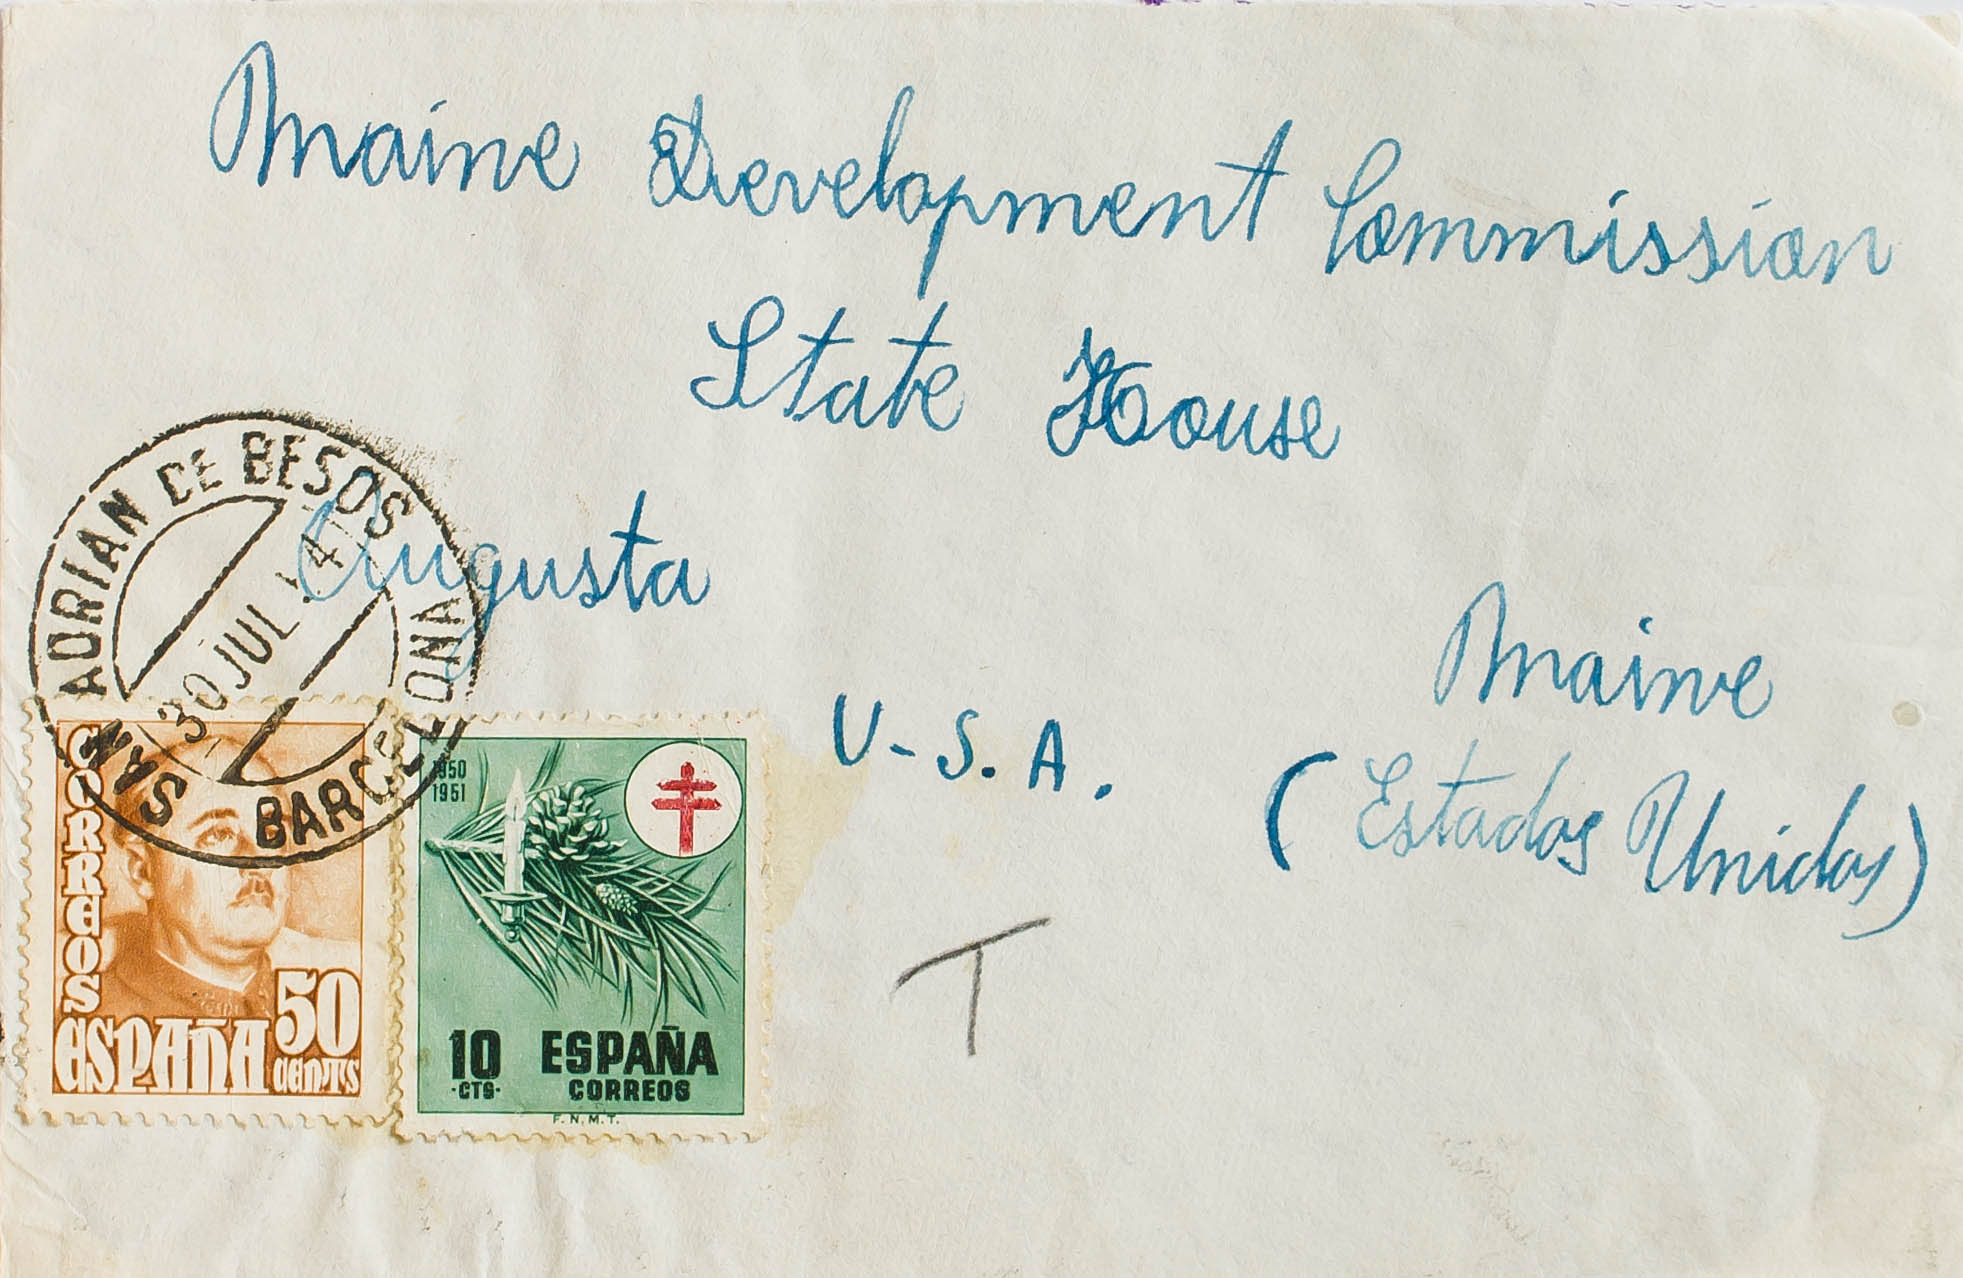 Maine Development Commission
State House
Augusta
Maine
U-S.A.
(Estados Unidos)
T
SAN ADRIAN DE BESOS
30 JUL 54
BARCELONA
CORREOS
ESPAÑA
50
CENTS
1950
1951
10
-CTS-
ESPAÑA
CORREOS
F.N.M.T.